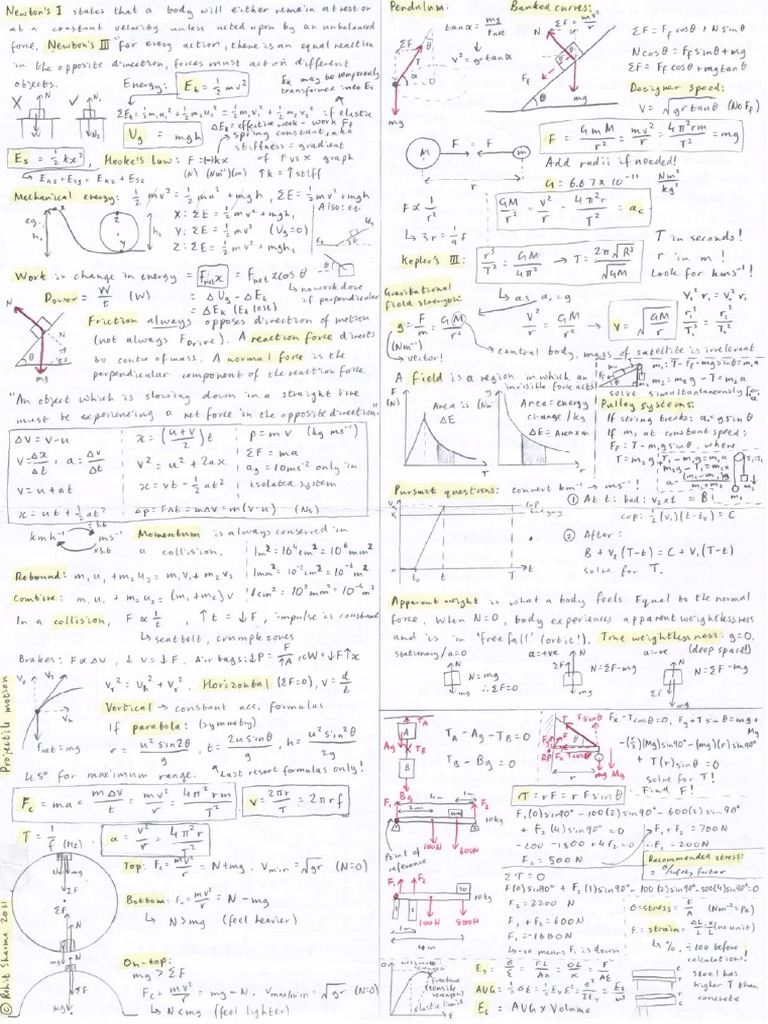 Newton's I states that a body will either remain at rest or
at a constant velocity unless acted upon by an unbalanced
force. Newton's III "for every action, there is an equal reaction
in the opposite direction, forces must act on different
objects.
Energy: Ek = ½mv²
Ek may be temporarily
transformed into Es
ΣEk = ½m₁u₁² + ½m₂u₂² = ½m₁v₁² + ½m₂v₂² if elastic
Ug = mgh
spring constant, aka
stiffness = gradient
of F vs x graph
Es = ½kx², Hooke's law: F = (-)kx
(N) (Nm⁻¹)(m) ↑k = ↑stiff
Ek1 + Es1 = Ek2 + Es2
Mechanical energy: ½mv² = ½mu² + mgh, ΣE = ½mv² + mgh
eg.
X: ΣE = ½mv² + mgh₁
Y: ΣE = ½mv² (Ug = 0)
Z: ΣE = ½mv² + mgh₂
Also: eg.
Work is change in energy = Fnet x = Fnet x cosθ
no work done
if perpendicular
Power = W/t (W)
= ΔUg - ΔEk
= ΔEk (Ek lost)
Friction always opposes direction of motion
(not always Fdrive). A reaction force directs
to centre of mass. A normal force is the
perpendicular component of the reaction force.
"An object which is slowing down in a straight line
must be experiencing a net force in the opposite direction."
Δv = v - u
x = ((u+v)/2)t
p = mv (kg ms⁻¹)
v = Δx/Δt, a = Δv/Δt
v² = u² + 2ax
ΣF = ma
ag = 10ms⁻² only in
isolated system
v = u + at
x = vt - ½at²
x = ut + ½at²
Δp = FΔt = mΔv = m(v-u) (Ns)
km h⁻¹ ÷3.6 ms⁻¹
×3.6
Momentum is always conserved in
a collision.
1m² = 10⁴cm² = 10⁶mm²
1mm² = 10⁻²cm² = 10⁻⁶m²
1cm² = 10²mm² = 10⁻⁴m²
Rebound: m₁u₁ + m₂u₂ = m₁v₁ + m₂v₂
Combine: m₁u₁ + m₂u₂ = (m₁+m₂)v
In a collision, F ∝ 1/t, ↑t = ↓F, impulse is constant
seatbelt, crumple zones
Brakes: F ∝ Δv, ↓v = ↓F. Air bags: ↓P = F/↑A
Projectile motion
Vr² = Vh² + Vv². Horizontal (ΣF=0), v = d/t
Vertical → constant acc. formulas
If parabola: (symmetry)
r = u² sin2θ/g, t = 2u sinθ/g, h = u² sin²θ/2g
Fnet = mg
45° for maximum range.
Last resort formulas only!
Fc = ma = mΔv/t = mv²/r = 4π²rm/T²
v = 2πr/T = 2πrf
T = 1/f (Hz)
a = v²/r = 4π²r/T²
Top: Fc = mv²/r = N + mg. vmin = √gr (N=0)
Bottom: Fc = mv²/r = N - mg
N > mg (feel heavier)
On-top:
mg > ΣF
Fc = mv²/r = mg - N. vmax/min = √gr (N=0)
N < mg (feel lighter)
© Rohit Sharma 2011
Pendulum:
v² = gr tanα
Banked curves:
ΣF = mv²/r
ΣF = Ff cosθ + N sinθ
N cosθ = Ff sinθ + mg
ΣF = Ff cosθ + mg tanθ
Designer speed:
v = √gr tanθ (No Ff)
F = GmM/r² = mv²/r = 4π²rm/T² = mg
Add radii if needed!
G = 6.67 × 10⁻¹¹ Nm²/kg²
F ∝ 1/r²
3r = 1/9 F
GM/r² = v²/r = 4π²r/T² = ac
Kepler's III: r³/T² = GM/4π² → T = 2π√R³/√GM
T in seconds!
r in m!
Look for kms⁻¹!
Gravitational
field strength:
g = F/m = GM/r²
(Nm⁻¹)
vector!
as ac = g
v²/r = GM/r² → v = √GM/r
V₁²r₁ = V₂²r₂
r₁³/T₁² = r₂³/T₂²
central body, mass of satellite is irrelevant
A field is a region in which an
invisible force acts!
m₁: T - Ff - mg sinθ = m₁a
m₂: m₂g - T = m₂a
solve simultaneously for a
Area is
ΔE
Area = energy
change / kg
ΔE = Area × m
Pulley systems:
If string breaks: a₁ = g sinθ
If m₁ at constant speed:
Ff = T - m₁g sinθ, where
T = m₂g
T₁ - m₁g = m₁a
m₂g - T₁ = m₂a
a = (m₂ - m₁)g/m₁ + m₂
Pursuit questions: convert kmh⁻¹ → ms⁻¹!
① At t: bad: v₂ × t = B
cop: ½(v₁)(t-t₀) = C
② After:
B + V₂(T-t) = C + V₁(T-t)
solve for T.
Apparent weight is what a body feels. Equal to the normal
force. When N=0, body experiences apparent weightlessness
and is in 'free fall' (orbit!). True weightlessness: g=0.
(deep space!)
stationary/a=0
N = mg
∴ ΣF = 0
a = +ve
N = ΣF + mg
a = -ve
N = ΣF - mg
TA - Ag - TB = 0
TB - Bg = 0
solve for T!
Find F!
τ = rF = rF sinθ
F₁(0)sin90° - 100(2)sin90° - 600(3)sin90°
+ F₂(4)sin90° = 0
-200 - 1800 + 4F₂ = 0
F₂ = 500N
F₁ + F₂ = 700N
∴ F₁ = 200N
Point of
reference
Recommended stress:
= σ/safety factor
Στ = 0
F₁(0)sin90° + F₂(1)sin90° - 100(2)sin90° - 500(4)sin90° = 0
F₂ = 2200 N
F₁ + F₂ = 600N
F₁ = -1600N
-ve means F₁ is down
σ = stress = F/A (Nm⁻² = Pa)
ε = strain = ΔL/L (no unit)
%, ÷100 before
calculations!
fracture
(tensile
strength)
elastic limit
Ey = σ/ε = FL/Ax
AUG = ½σε = ½Ey ε² = σ²/2Ey = Es/V
Es = AUG × Volume
steel has
higher T than
concrete